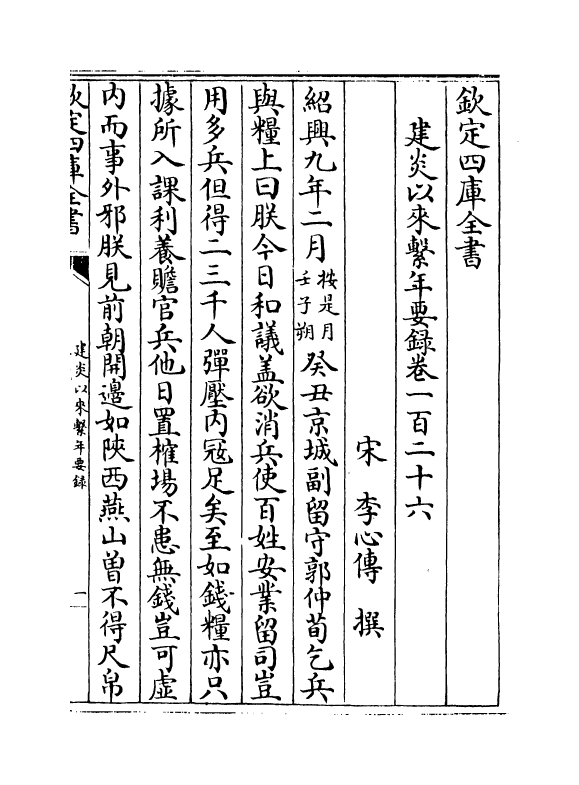 欽定四庫全書
建炎以來繫年要錄卷一百二十六
宋 李心傳 撰
紹興九年二月按是月壬子朔癸丑京城副留守郭仲荀乞兵
與糧上曰朕今日和議盖欲消兵使百姓安業留司豈
用多兵但得二三千人彈壓内冦足矣至如錢糧亦只
據所入課利養贍官兵他日置榷場不患無錢豈可虚
内而事外邪朕見前朝開邊如陜西燕山曽不得尺帛
欽定四庫全書
建炎以來繫年要錄
一